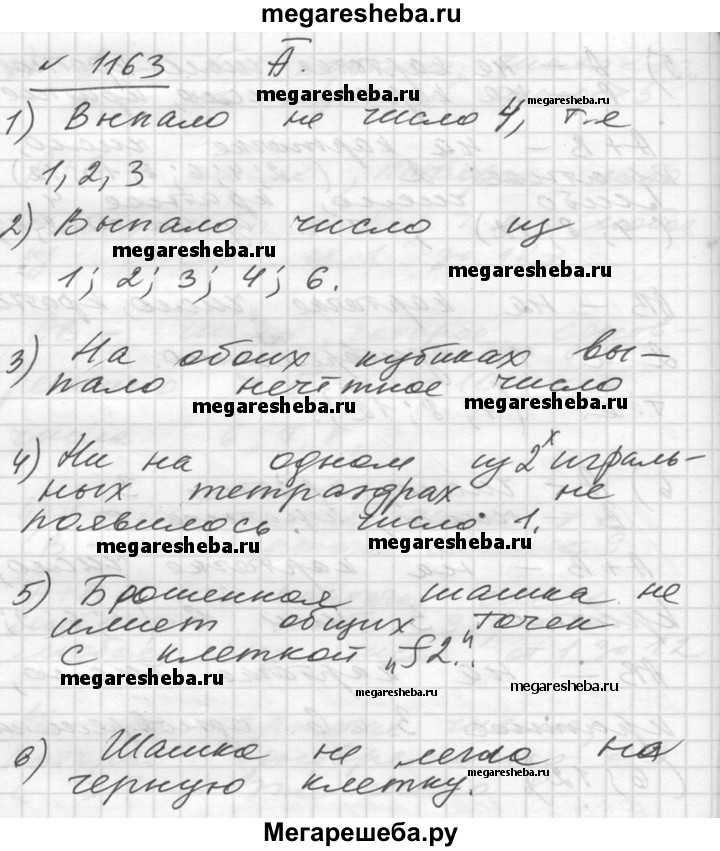 megaresheba.ru
№ 1163 Ā.
megaresheba.ru megaresheba.ru
1) Выпало не число 4, т.е
1, 2, 3
2) Выпало число из
megaresheba.ru megaresheba.ru
1; 2; 3; 4; 6.
3) На обоих кубиках вы-
пало нечётное число
megaresheba.ru megaresheba.ru
4) Ни на одном из 2х играль-
ных тетраэдрах не
появилось число 1.
megaresheba.ru megaresheba.ru
5) Брошенная шашка не
имеет общих точек
с клеткой „f2."
megaresheba.ru megaresheba.ru megaresheba.ru
6) Шашка не легла на
megaresheba.ru
черную клетку.
Мегарешеба.ру